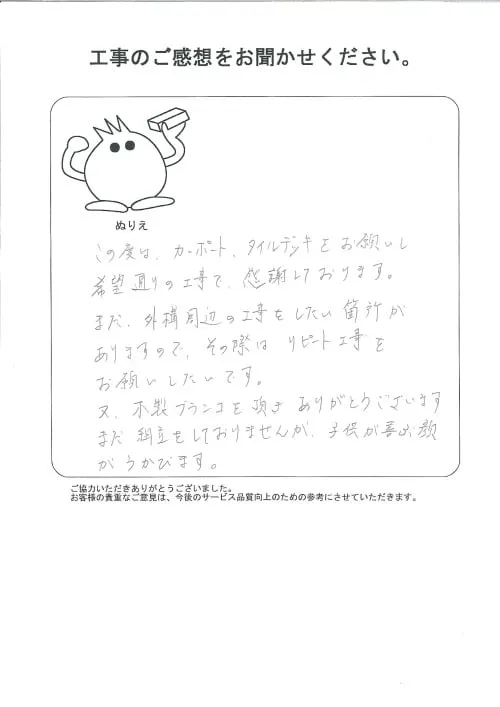 工事のご感想をお聞かせください。
ぬりえ
この度は、カーポート、タイルデッキをお願いし
希望通りの工事で、感謝しております。
まだ、外構周辺の工事をしたい箇所が
ありますので、その際は リピート工事を
お願いしたいです。
又、木製ブランコを頂き ありがとうございます
まだ 組立をしておりませんが、子供が喜ぶ顔
がうかびます。
ご協力いただきありがとうございました。
お客様の貴重なご意見は、今後のサービス品質向上のための参考にさせていただきます。